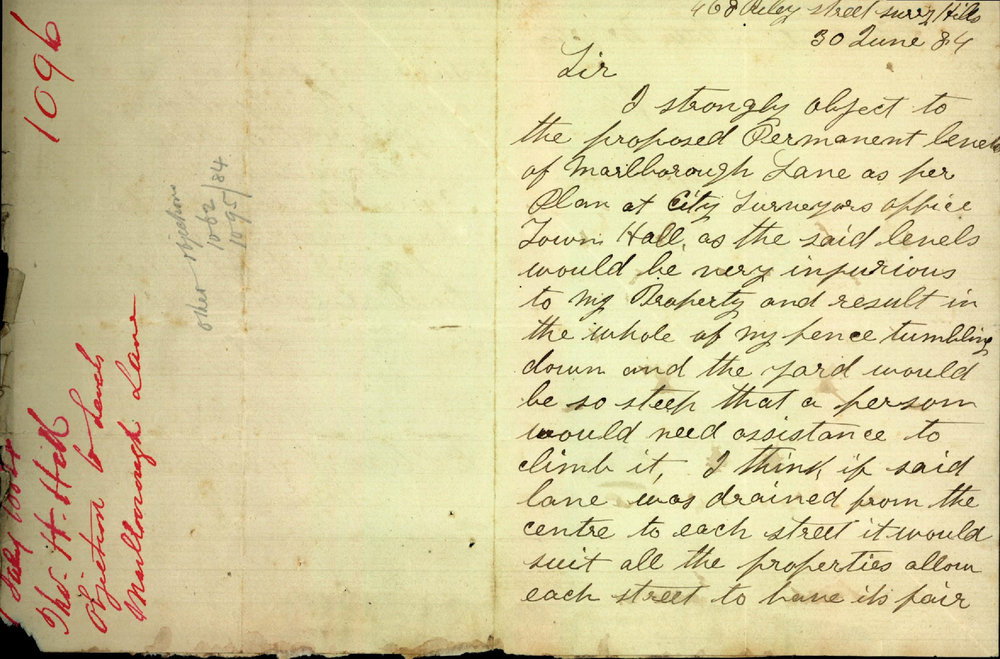 1096
other objections
1062
1095/84
July 1884
Thos. H. Hill
Objection to Levels
Marlborough Lane
468 Riley street Surry Hills
30 June 84
Sir
I strongly object to
the proposed Permanent levels
of Marlborough Lane as per
Plan at City Surveyors office
Town Hall, as the said levels
would be very injurious
to my Property and result in
the whole of my fence tumbling
down and the yard would
be so steep that a person
would need assistance to
climb it, I think, if said
lane was drained from the
centre to each street it would
suit all the properties allow
each street to have its fair